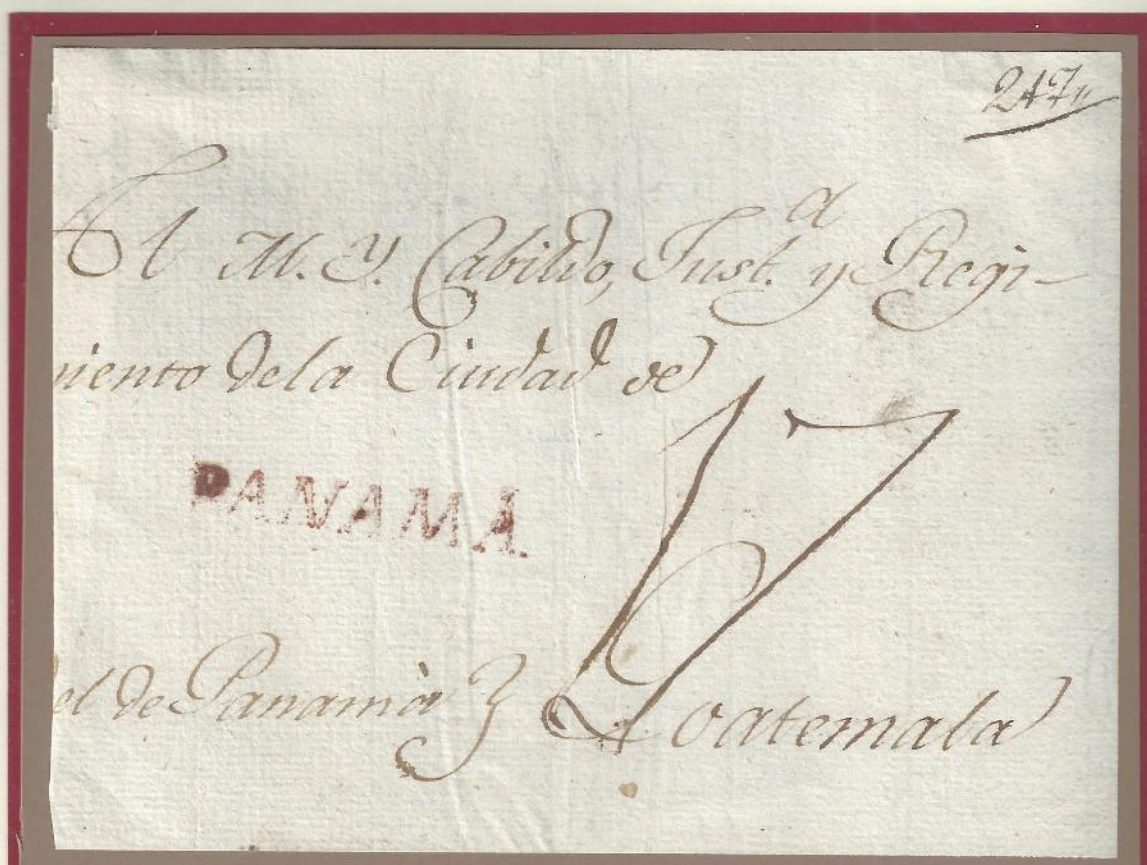 247
Al M. Y. Cabildo, Just.ª y Regi-
miento dela Ciudad de
17
PANAMA.
el de Panamà
Goatemala